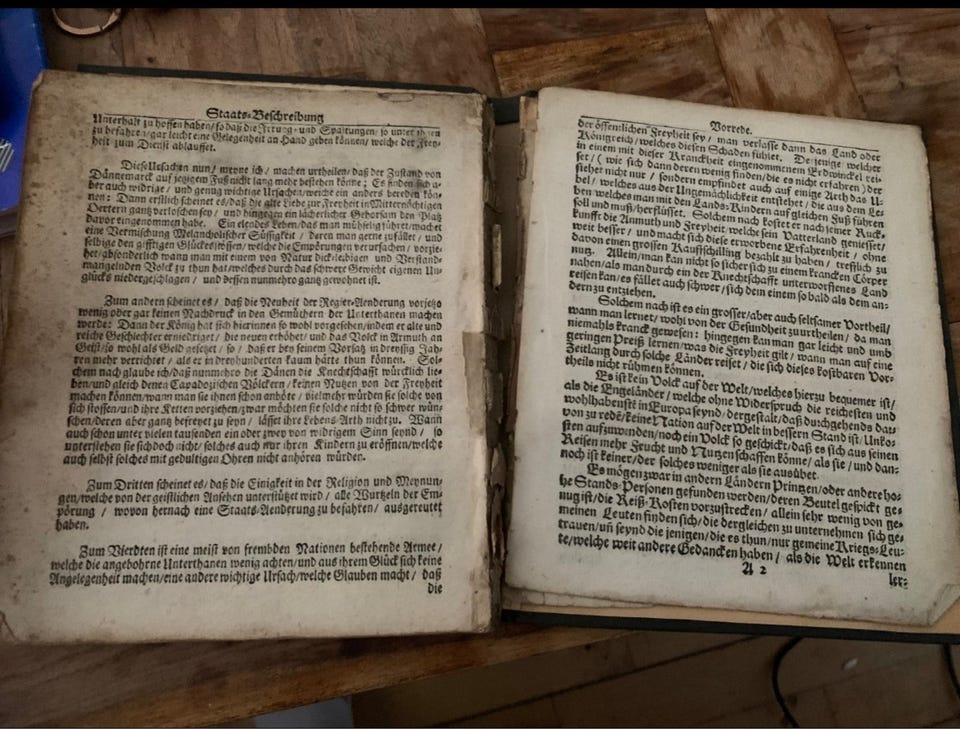 Staats-Beschreibung
Unterhalt zu hoffen haben / so daß die Irrung- und Spaltungen / so unter ihnen
zu befahren / gar leicht eine Gelegenheit an Hand geben können / welche der Frey-
heit zum Dienst ablauffet.
Diese Ursachen nun / meyne ich / machen urtheilen / daß der Zustand von
Dännemarck auf jetzigem Fuß nicht lang mehr bestehen könne; Es finden sich a-
ber auch widrige / und genug wichtige Ursachen / welche ein anders bereden kön-
nen: Dann erstlich scheinet es / daß die alte Liebe zur Freyheit in Mitternächtigen
Oertern gantz verloschen sey / und hingegen ein lächerlicher Gehorsam den Platz
davor eingenommen habe. Ein elendes Leben / das man mühselig führt / machet
eine Vermischung Melancholischer Süssigkeit / deren man gerne zufället / und
selbige den gifftigen Glückesstössen / welche die Empörungen verursachen / vorzie-
het / absonderlich wann man mit einem von Natur dickleibigen und Verstand-
mangelnden Volck zu thun hat / welches durch das schwere Gewicht eigenen Un-
glücks niedergeschlagen / und dessen nunmehro gantz gewohnet ist.
Zum andern scheinet es / daß die Neuheit der Regier-Aenderung vorjetzo
wenig oder gar keinen Nachdruck in den Gemüthern der Unterthanen machen
werde: Dann der König hat sich hierinnen so wohl vorgesehen / indem er alte und
reiche Geschlechter erniedriget / die neuen erhöhet / und das Volck in Armuth an
Geist / so wohl als Geld gesetzet / so / daß er bey seinem Vorsatz in dreyssig Jah-
ren mehr verrichtet / als er in dreyhunderten kaum hätte thun können. Sol-
chem nach glaube ich / daß nunmehro die Dänen die Knechtschafft würcklich lie-
ben / und gleich denen Capadozischen Völckern / keinen Nutzen von der Freyheit
machen können / wann man sie ihnen schon anböte / vielmehr würden sie solche von
sich stossen / und ihre Ketten vorziehen / zwar möchten sie solche nicht so schwer wün-
schen / deren aber gantz befreyet zu seyn / lässet ihre Lebens-Arth nicht zu. Wann
auch schon unter vielen tausenden ein oder zwey von widrigem Sinn seynd / so
unterstehen sie sich doch nicht / solches auch nur ihren Kindern zu eröffnen / welche
auch selbst solches mit gedultigen Ohren nicht anhören würden.
Zum Dritten scheinet es / daß die Einigkeit in der Religion und Meynun-
gen / welche von der geistlichen Ansehen unterstützet wird / alle Wurtzeln der Em-
pörung / wovon hernach eine Staats-Aenderung zu befahren / ausgereutet
haben.
Zum Vierdten ist eine meist von frembden Nationen bestehende Armee /
welche die angebohrne Unterthanen wenig achten / und aus ihrem Glück sich keine
Angelegenheit machen / eine andere wichtige Ursach / welche Glauben macht / daß
die
Vorrede.
der öffentlichen Freyheit sey / man verlasse dann das Land oder
Königreich / welches diesen Schaden fühlet. Dejenige welcher
in einem mit dieser Kranckheit eingenommenen Erdwinckel rei-
set / (wie sich dann deren wenig finden / die es nicht erfahren) der
siehet nicht nur / sondern empfindet auch auf einige Arth das U-
bel / welches aus der Ungemächlichkeit entstehet / die aus dem Le-
ben welches man mit den Lands-Kindern auf gleichen Fuß führen
soll und muß / herflüsset. Solchem nach kostet er nach seiner Ruck-
kunfft die Anmuth und Freyheit / welche sein Vatterland geniesset /
weit besser / und macht sich diese erworbene Erfahrenheit / ohne
davon einen grossen Kauffschilling bezahlt zu haben / trefflich zu
nutz. Allein / man kan nicht so sicher sich zu einem krancken Cörper
nahen / als man durch ein der Knechtschafft unterworffenes Land
reisen kan / es fället auch schwer / sich dem einem so bald als dem an-
dern zu entziehen.
Solchem nach ist es ein grosser / aber auch seltsamer Vortheil /
wann man lernet / wohl von der Gesundheit zu urtheilen / da man
niemahls kranck gewesen: hingegen kan man gar leicht und umb
geringen Preiß lernen / was die Freyheit gilt / wann man auf eine
Zeitlang durch solche Länder reiset / die sich dieses kostbaren Vor-
theils nicht rühmen können.
Es ist kein Volck auf der Welt / welches hierzu bequemer ist /
als die Engeländer / welche ohne Widerspruch die reichesten und
wohlhabenste in Europa seynd / dergestalt / daß durchgehends dar-
von zu redē / keine Nation auf der Welt in bessern Stand ist / Unko-
sten aufzuwenden / noch ein Volck so geschickt / daß es sich aus seinen
Reisen mehr Frucht und Nutzen schaffen könne / als sie / und dan-
noch ist keiner / der solches weniger als sie ausübet.
Es mögen zwar in andern Ländern Printzen / oder andere ho-
he Stands-Personen gefunden werden / deren Beutel gespickt ge-
nug ist / die Reiß-Kosten vorzustrecken / allein sehr wenig von ge-
meinen Leuten finden sich / die dergleichen zu unternehmen sich ge-
trauen / uñ seynd die jenigen / die es thun / nur gemeine Kriegs-Leu-
te / welche weit andere Gedancken haben / als die Welt erkennen
A 2
ler-